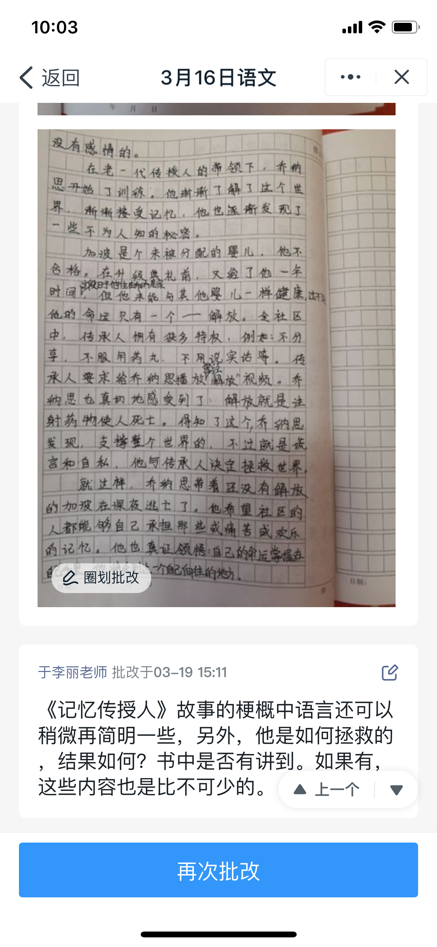 10:03
返回
3月16日语文
年 月 日
没有感情的。
在老一代传授人的带领下，乔纳
思开始了训练。他渐渐了解了这个世
界，渐渐接受记忆，他也逐渐发现了
一些不为人知的秘密。
加波是个未被分配的婴儿，他不
合格。在升级典礼前，又给了他一年
时间，但他未能与其他婴儿一样健康，
他的命运只有一个——解放。全社区
中，传承人拥有很多特权，例如：不分
享，不服用药丸，不用说实话等。传
承人要求给乔纳思播放"解放"视频。乔
纳思也真切地感受到了：解放就是注
射药物使人死亡。得知了这个，乔纳思
发现，支撑整个世界的，不过就是谎
言和自私，他与传承人决定拯救世界。
就这样，乔纳思带着还没有解放
的加波在深夜逃亡了。他希望社区的
人都能够自己承担那些或痛苦或欢乐
的记忆。他也真正领悟：自己的命运掌握在
一个自己向往的地方。
圈划批改
于李丽老师 批改于03-19 15:11
《记忆传授人》故事的梗概中语言还可以
稍微再简明一些，另外，他是如何拯救的
，结果如何？书中是否有讲到。如果有，
这些内容也是比不可少的。
上一个
再次批改